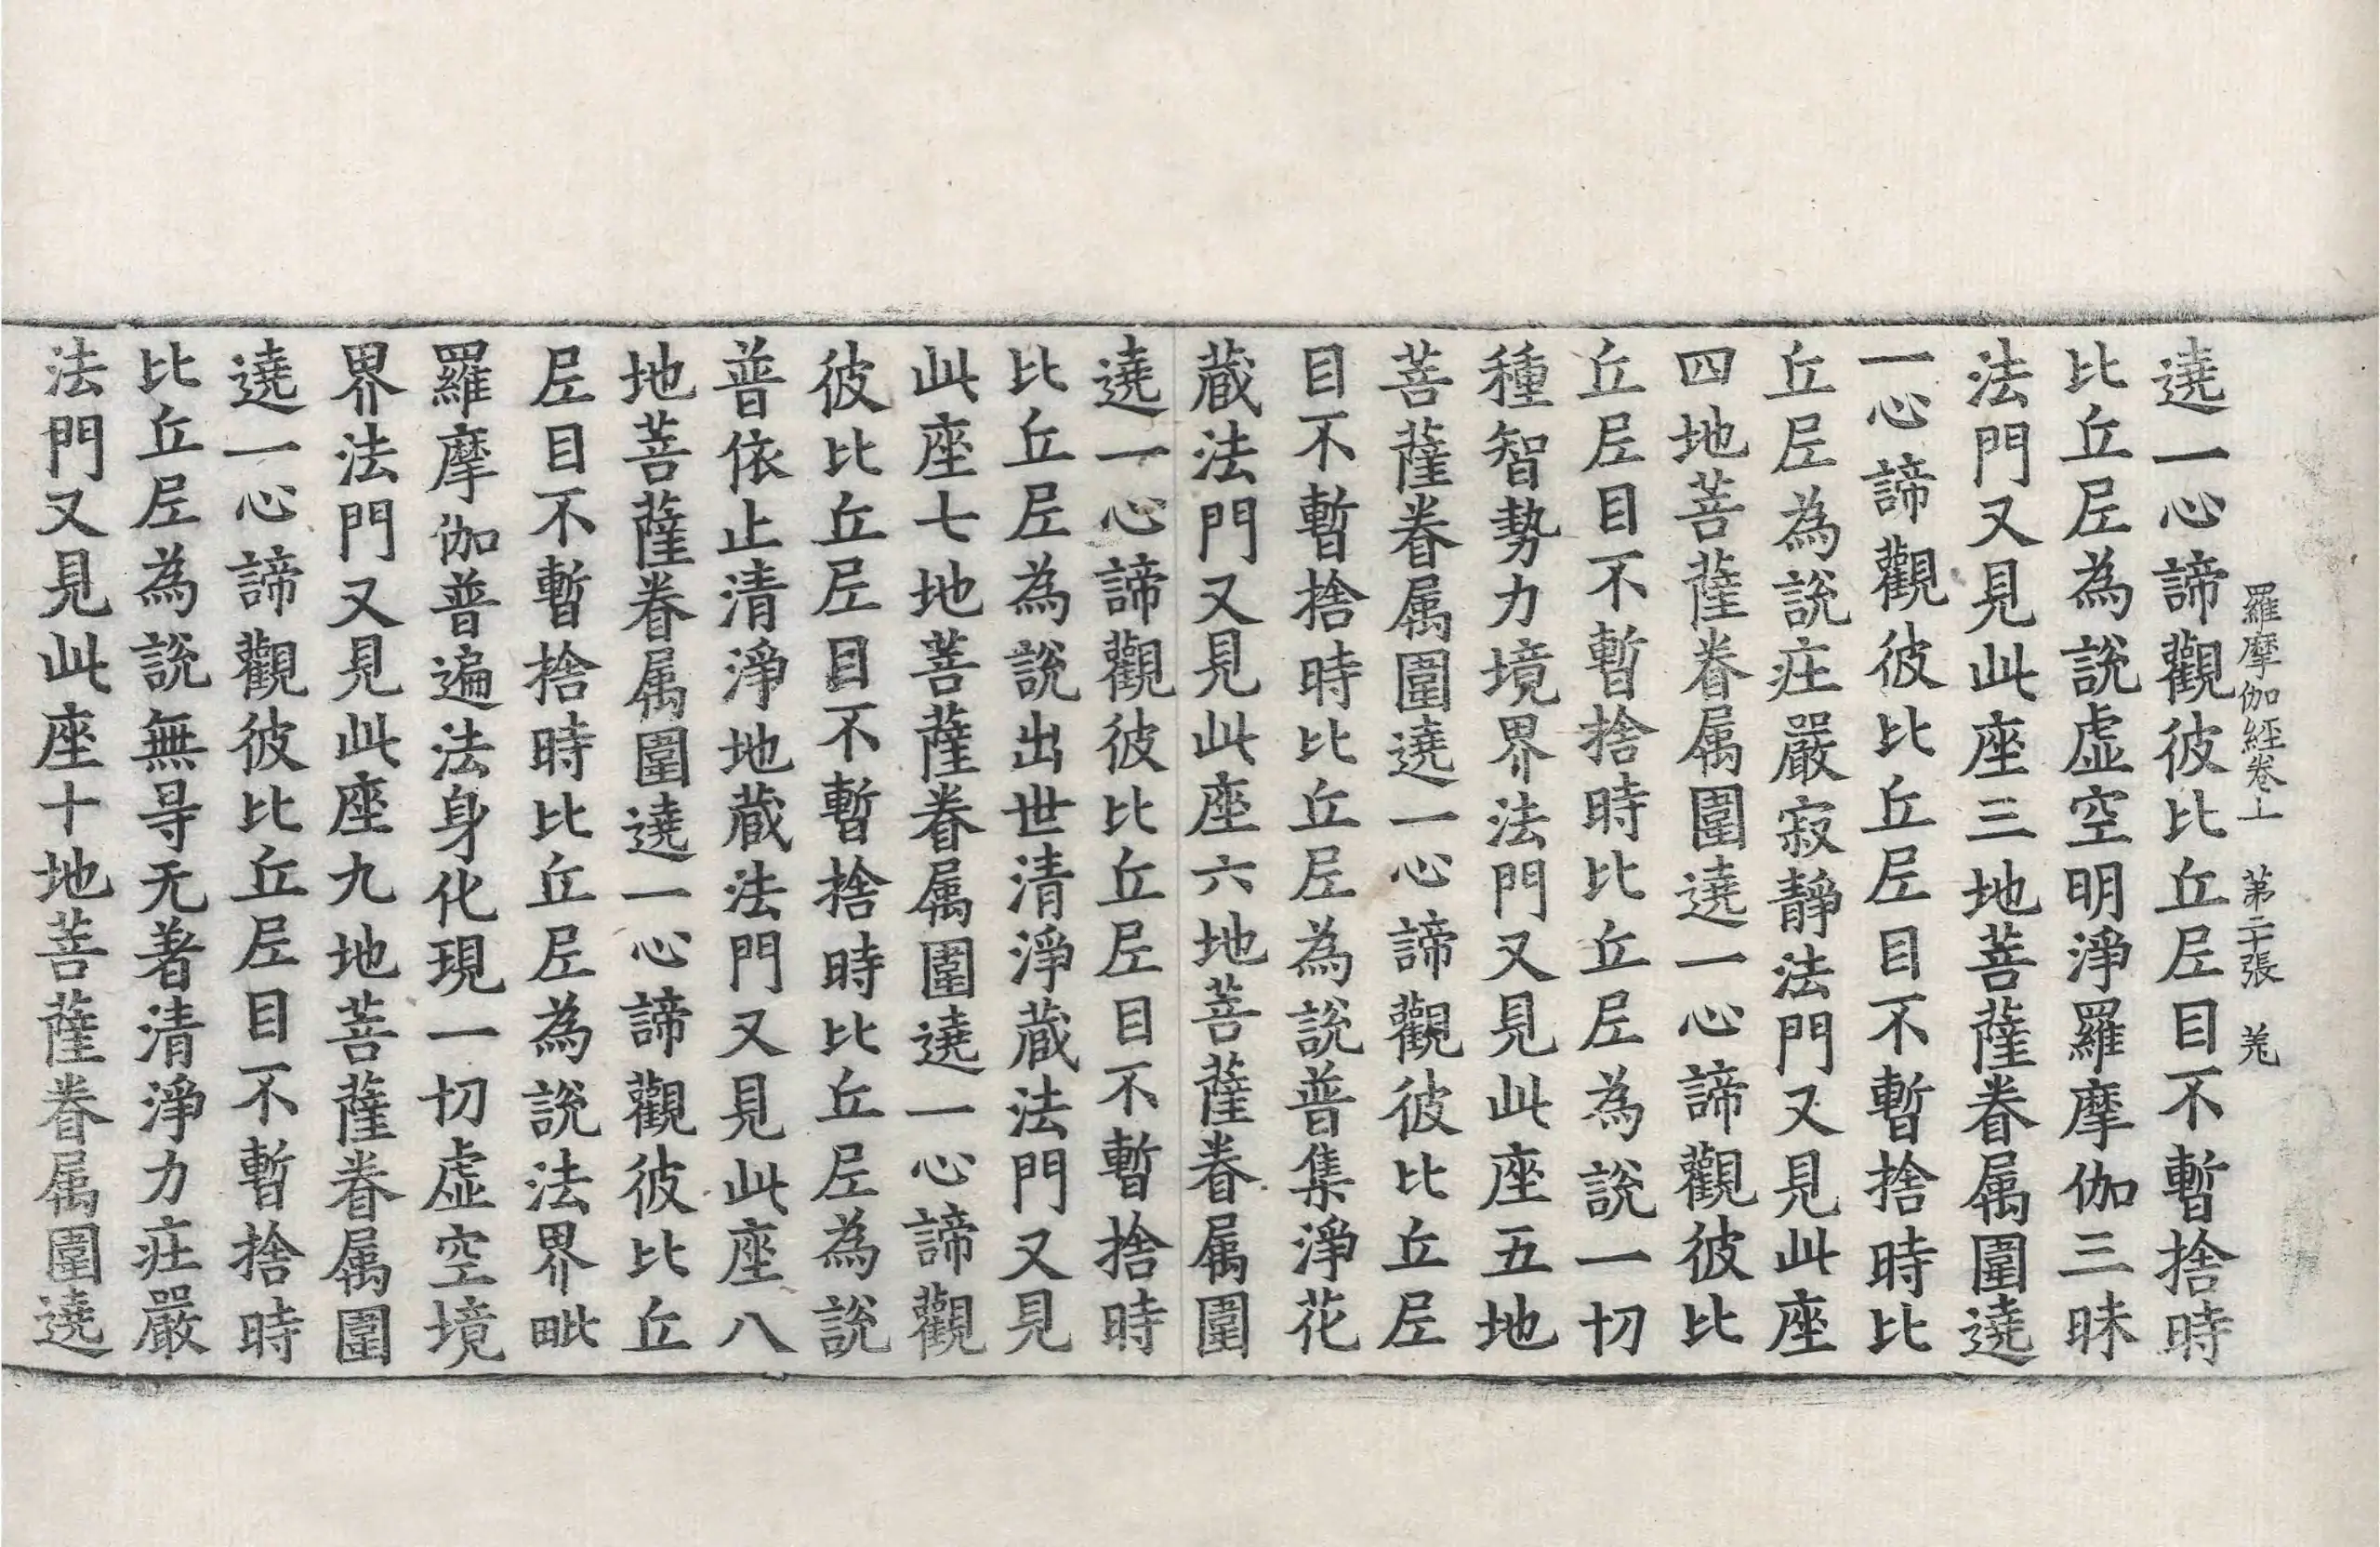 羅摩伽經卷上　第二十張　羗
遶一心諦觀彼比丘𡰱目不暫捨時
比丘𡰱為說虛空明淨羅摩伽三昧
法門又見此座三地菩薩眷属圍遶
一心諦觀彼比丘𡰱目不暫捨時比
丘𡰱為說疰嚴寂靜法門又見此座
四地菩薩眷属圍遶一心諦觀彼比
丘𡰱目不暫捨時比丘𡰱為說一切
種智勢力境界法門又見此座五地
菩薩眷属圍遶一心諦觀彼比丘𡰱
目不暫捨時比丘𡰱為說普集淨花
蔵法門又見此座六地菩薩眷属圍
遶一心諦觀彼比丘𡰱目不暫捨時
比丘𡰱為說出世清淨蔵法門又見
此座七地菩薩眷属圍遶一心諦觀
彼比丘𡰱目不暫捨時比丘𡰱為說
普依止清淨地蔵法門又見此座八
地菩薩眷属圍遶一心諦觀彼比丘
𡰱目不暫捨時比丘𡰱為說法界毗
羅摩伽普遍法身化現一切虛空境
界法門又見此座九地菩薩眷属圍
遶一心諦觀彼比丘𡰱目不暫捨時
比丘𡰱為說無㝵无著清淨力疰嚴
法門又見此座十地菩薩眷属圍遶